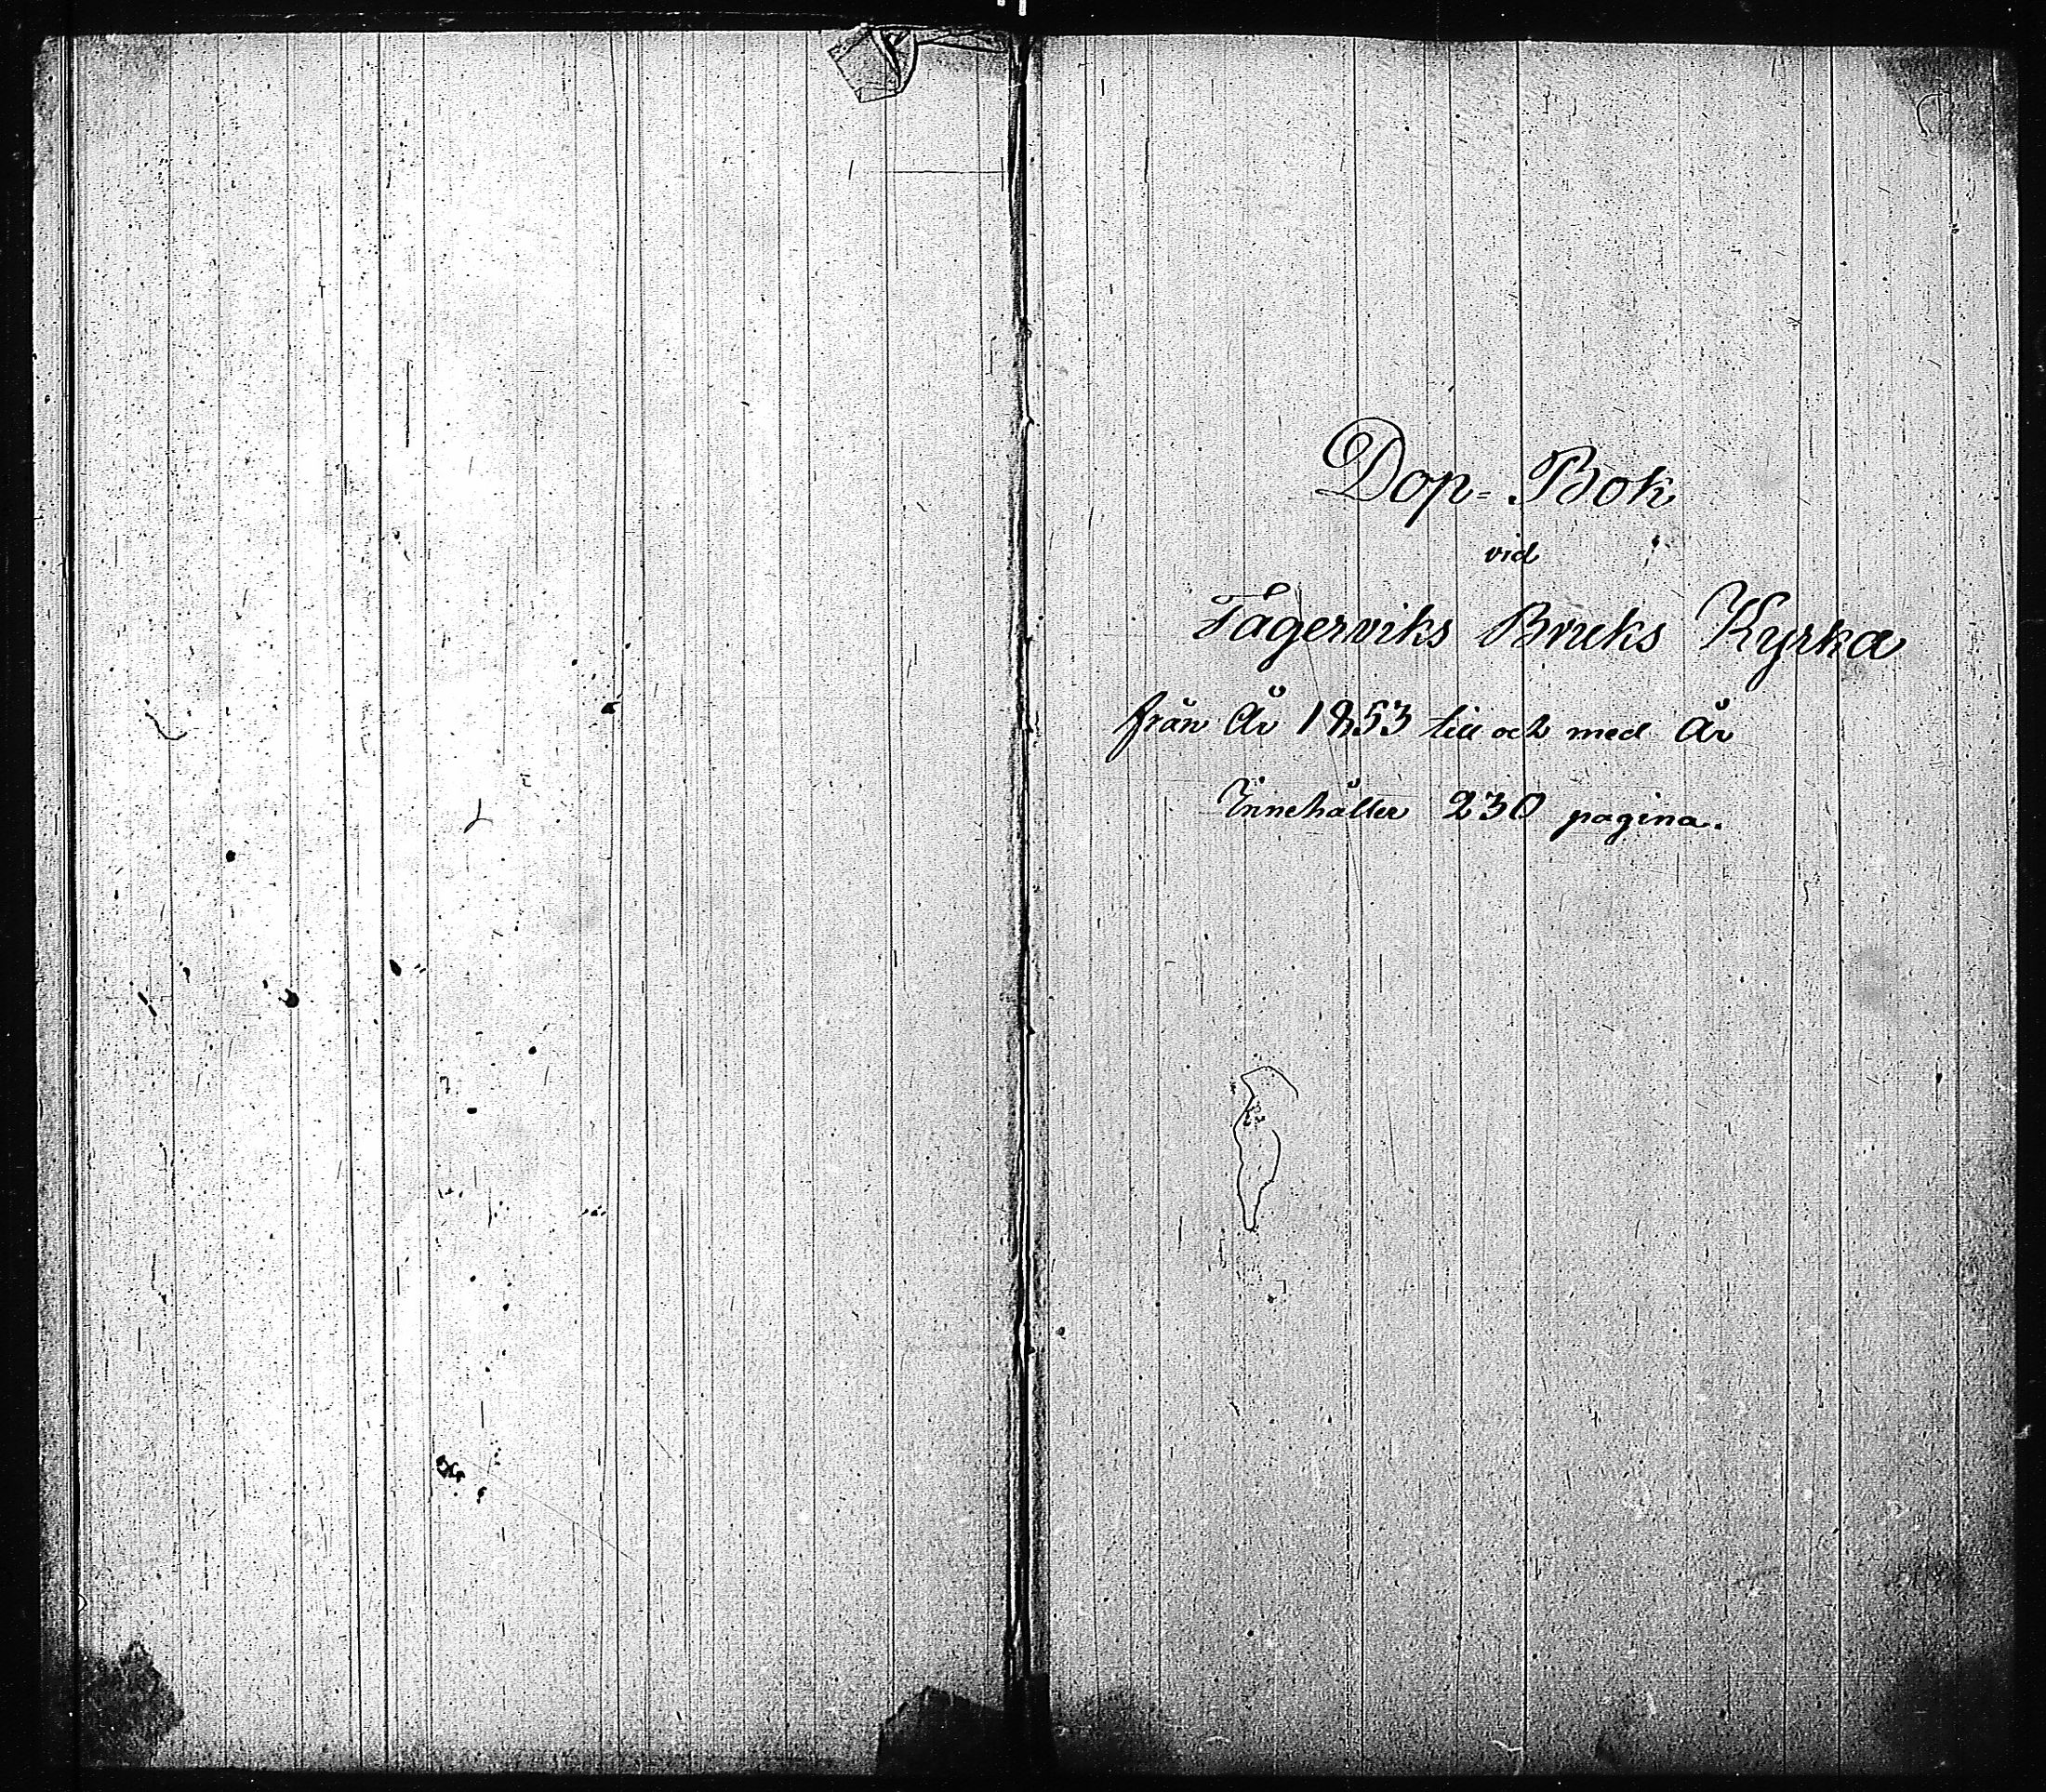 Dop-Bok
vid
Fagerviks Bruks Kyrka
från År 1853 till och med År
Innehåller 230 pagina.